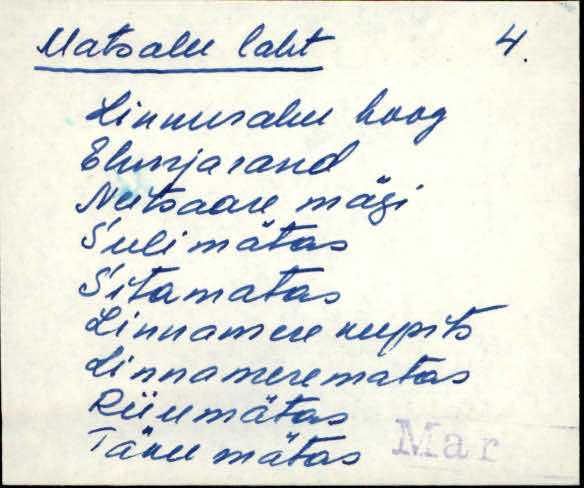 Matsalu laht 4.
Linnusalu hoog
Elmrjasand
Neitsaare mägi
Sulimätas
Sitamatas
Linnamere neepits
Linnamerematas
mätas
mätas
Mar